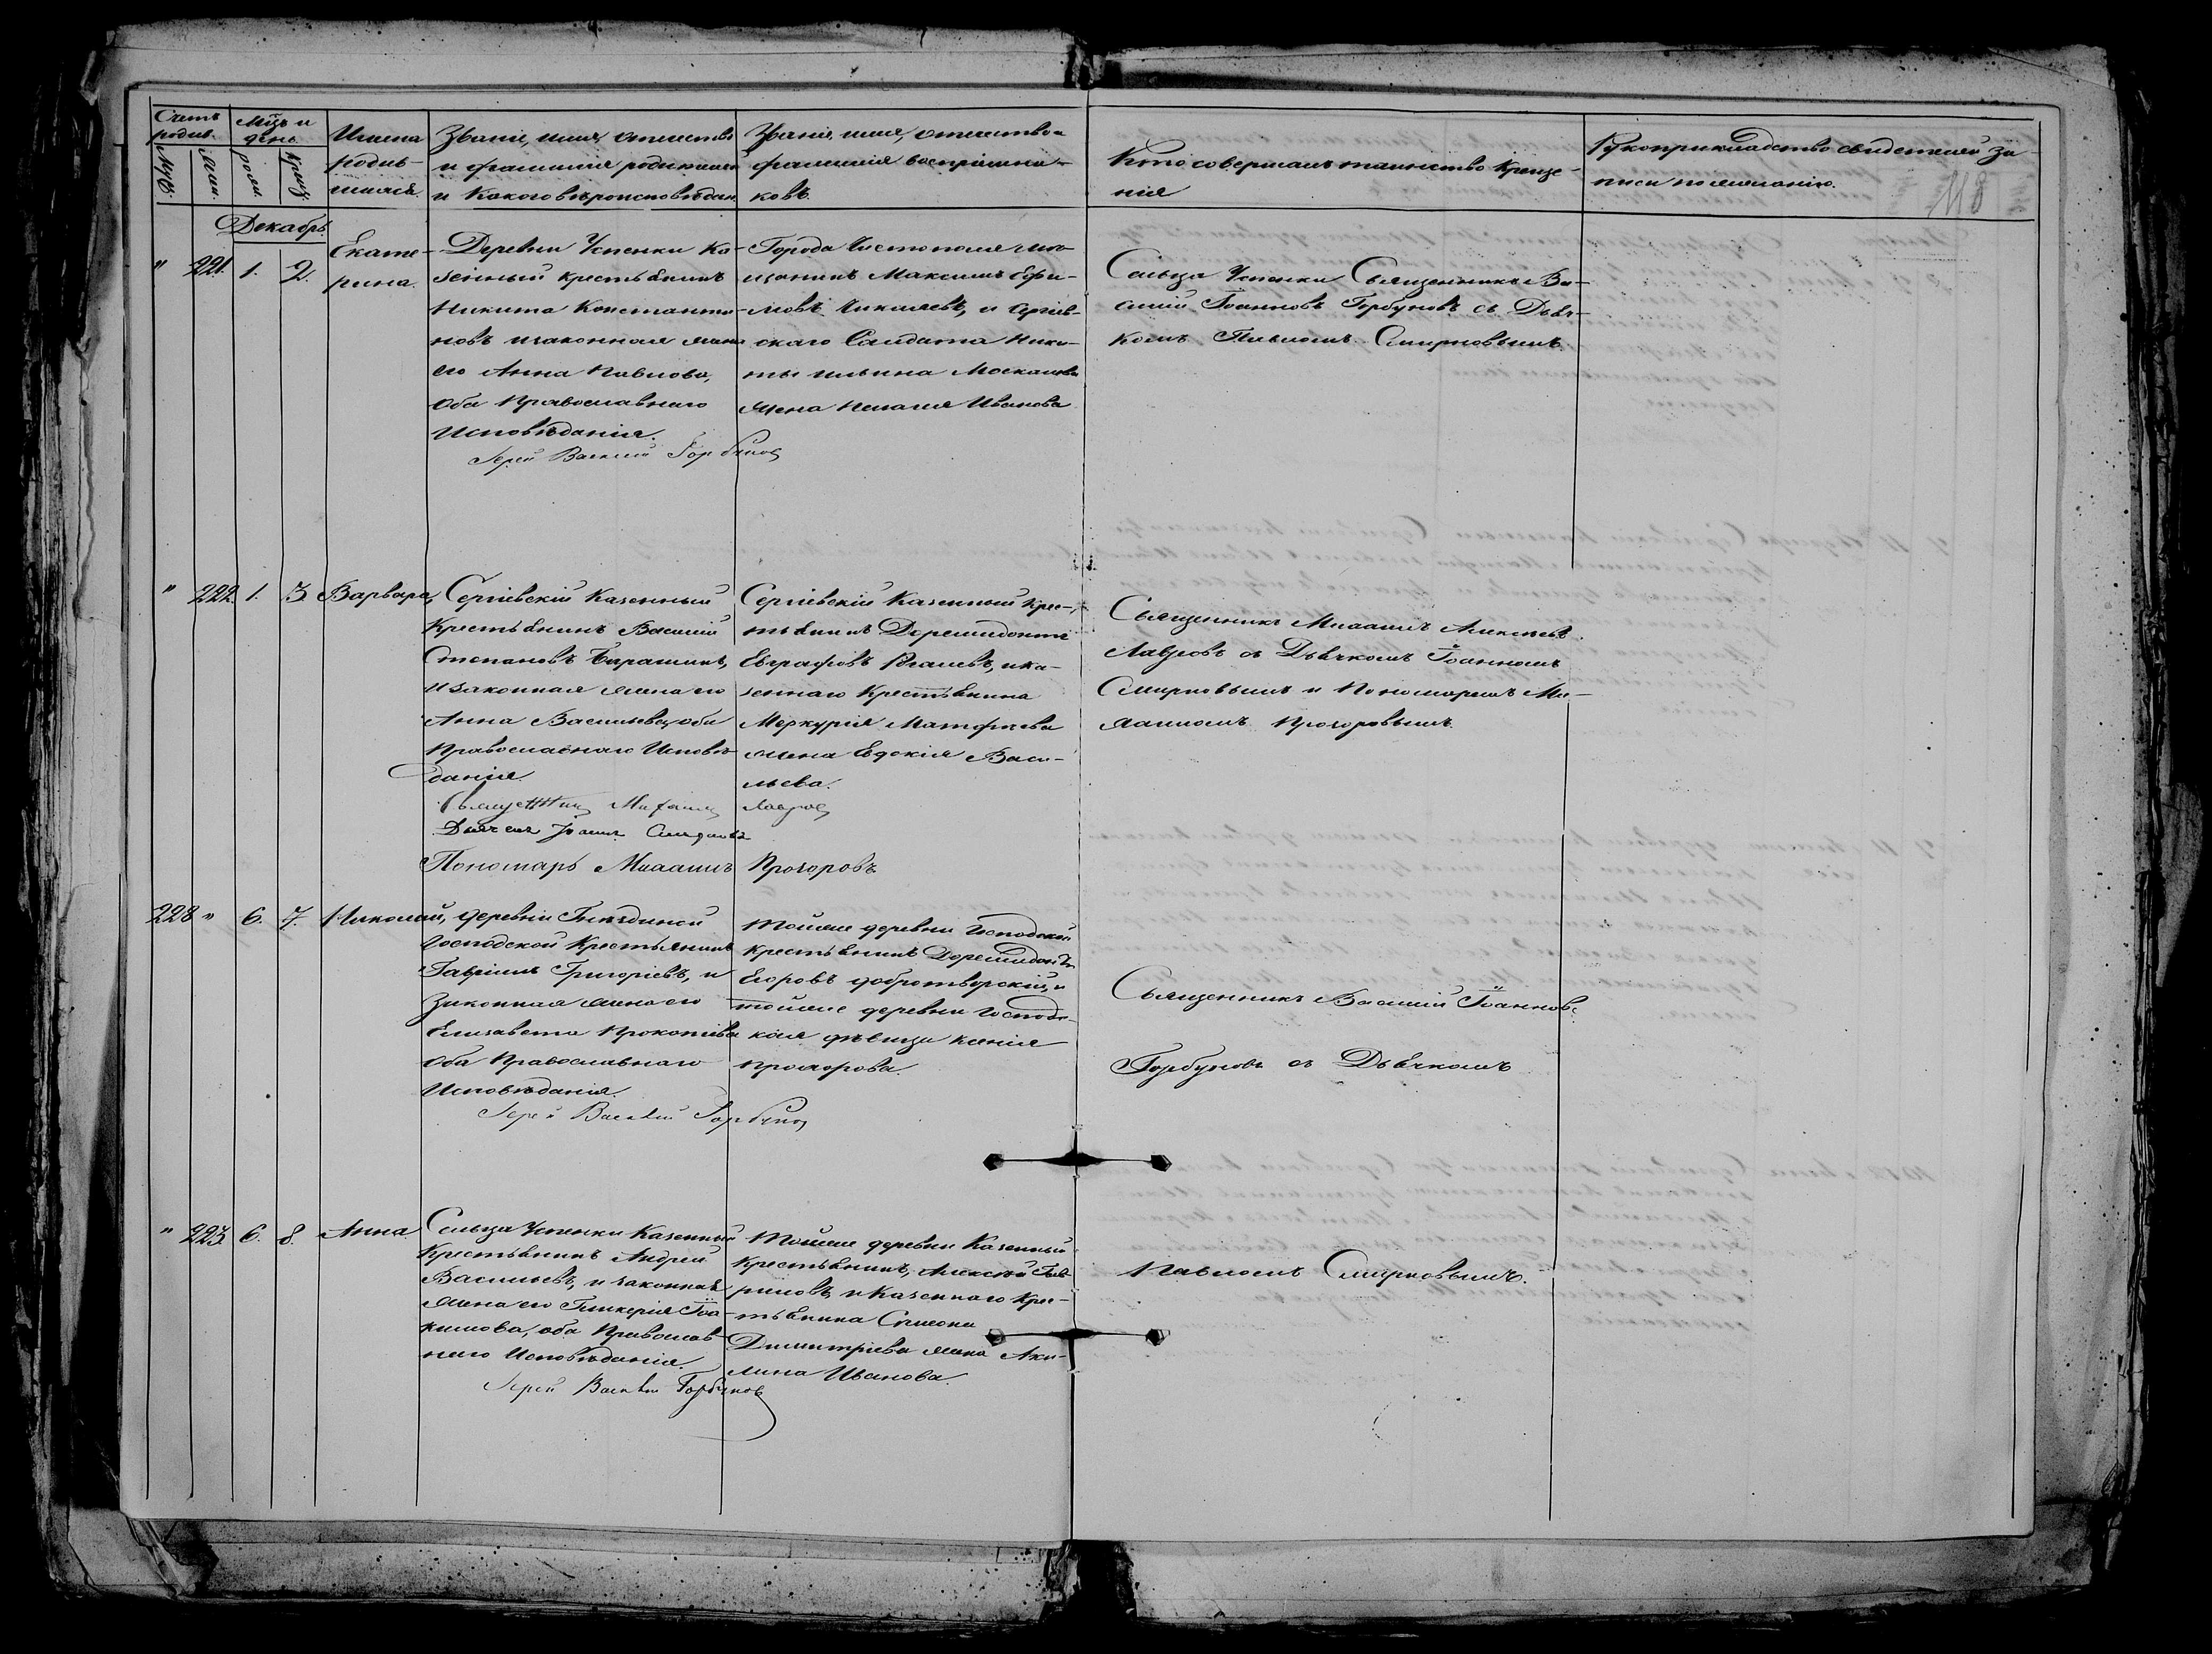 Счетъ родив.
Муж.
Жен.
Мцъ и день
рожд.
крещ.
Имена
родив-
шихся.
Званіе, имя, отчество
и фамилія родителей
и какого вѣроисповѣдан.
Званіе, имя, отчество и
фамилія воспріемни-
ковъ.
Кто совершалъ таинство креще-
нія
Рукоприкладство свидетелей за-
писи по желанію.
118
Декабрь
" 221. 1. 2.
Екате-
рина.
Деревни Успенки ка-
зенный крестьянинъ
Никита Константи-
новъ и законная жена
его Анна Павлова,
оба Православнаго
Исповѣданія.
Іерей Василій Горбунов
Города Чистополя мѣ-
щанинъ Максимъ Ефи-
мовъ и Сергіев-
скаго Салдата Ники-
ты Ильина Москалева
жена Пелагія Иванова
Сельца Успенки Священникъ Ва-
силій Іоанновъ Горбуновъ съ Дьяч-
комъ Павломъ Смирновымъ.
" 222. 1. 3. Варвара,
Сергіевскій казенный
крестьянинъ Василій
Степановъ
и законная жена его
Анна Васильева, оба
Православнаго Исповѣ-
данія.
Священник Михаил Лавров
Дьячекъ Іоаннъ Смирновъ
Пономарь Михаилъ Прохоровъ
Сергіевскій Казенный крес-
тьянинъ Доремидонтъ
Евграфовъ и ка-
зеннаго крестьянина
Меркурія Матфѣева
жена Евдокія Васи-
льева.
Священникъ Михаилъ Алексѣевъ
Лавровъ съ Дьячкомъ Іоанномъ
Смирновымъ и Пономаремъ Ми-
хаиломъ Прохоровымъ
228 " 6. 7. Николай,
деревни Гнѣздиной
господской крестьянинъ
Гавріилъ Григоріевъ, и
законная жена его
Елизавета Прокопіева
оба Православнаго
Исповѣданія.
Іерей Василій Горбунов
тойже деревни господской
крестьянинъ Доремидонтъ
Егоровъ Добротворскій, и
тойже деревни господс-
кая дѣвица Ксенія
Прохорова.
Священникъ Василій Іоаннов.
Горбуновъ съ Дьячкомъ
" 223. 6. 8. Анна
Сельца Успенки Казенный
крестьянинъ Андрей
Васильевъ, и законная
жена его Гликерія Іоа-
кимова, оба Православ-
наго Исповѣданія.
Іерей Василій Горбунов
Тойже деревни Казенный
крестьянинъ, Алексѣй Гав-
риловъ и Казеннаго крес-
тьянина Симеона
Димитріева жена Аку-
лина Иванова.
Павломъ Смирновымъ.